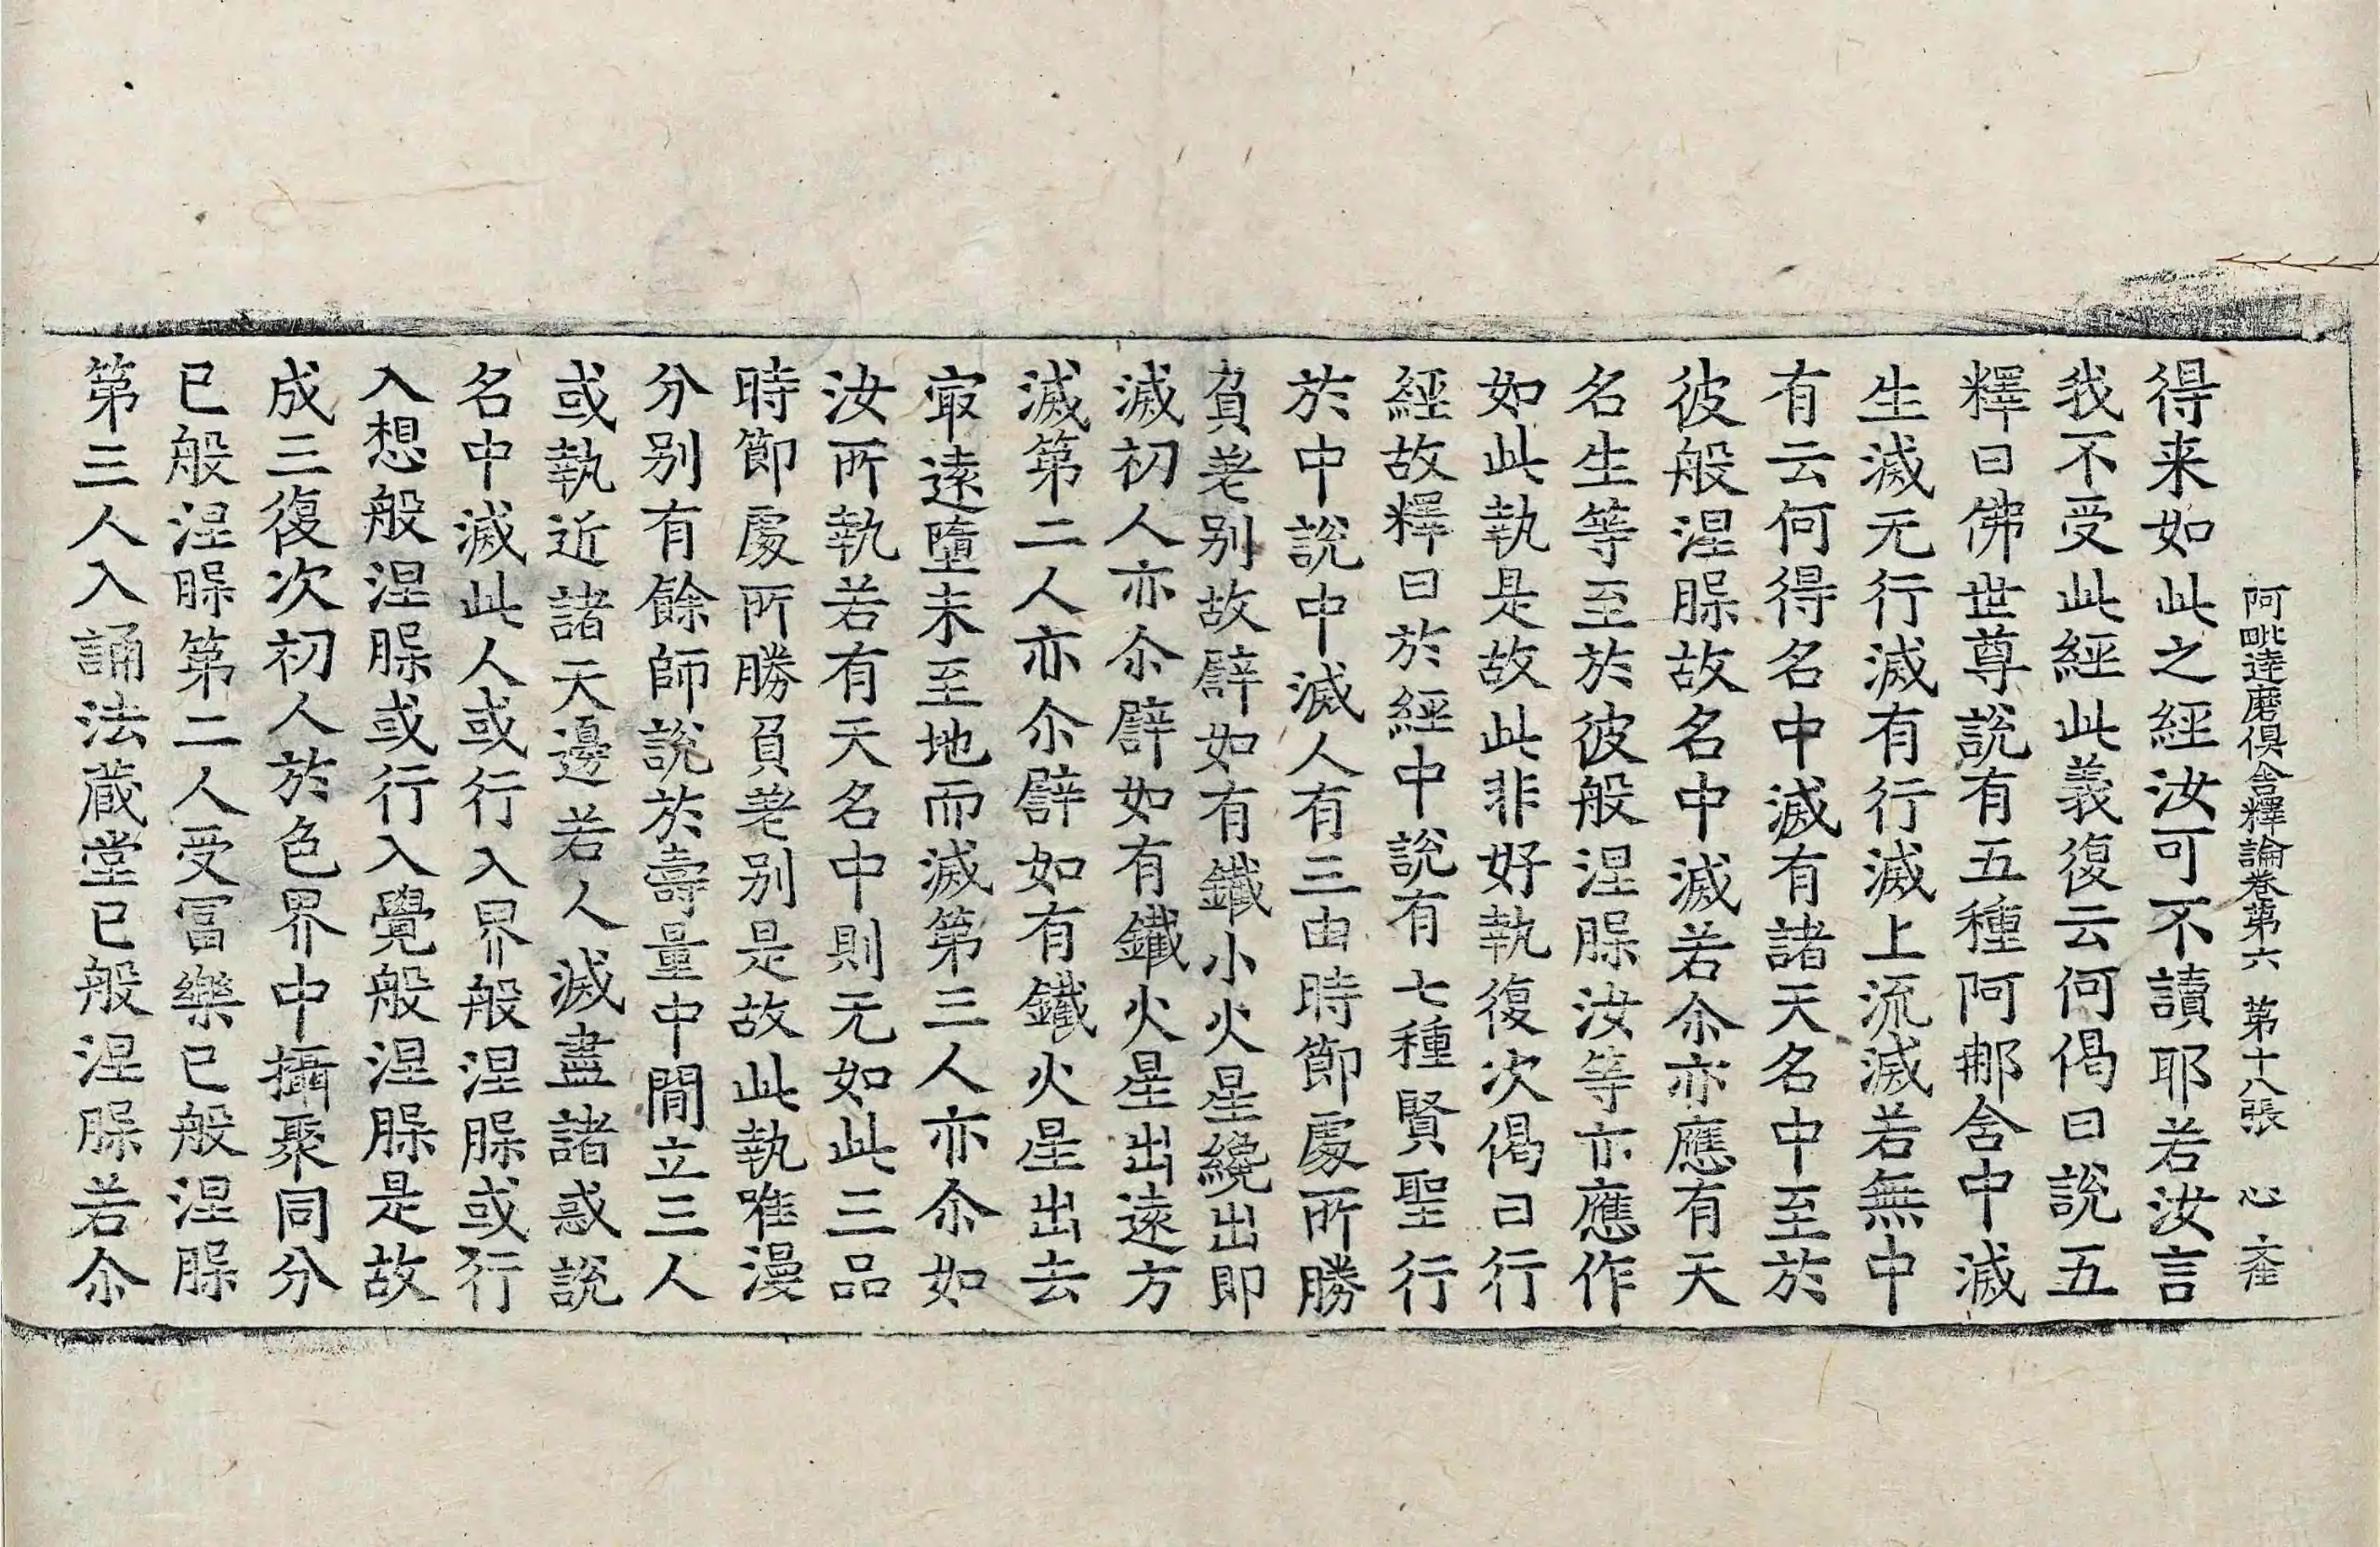 阿毗達磨俱舍釋論卷第六 第十八張 心
得来如此之經汝可不讀耶若汝言
我不受此經此義復云何偈曰說五
釋曰佛世尊說有五種阿那含中滅
生滅无行滅有行滅上流滅若無中
有云何得名中滅有諸天名中至於
彼般涅槃故名中滅若尒亦應有天
名生等至於彼般涅槃汝等亦應作
如此執是故此非好執復次偈曰行
經故釋曰於經中說有七種賢聖行
於中說中滅人有三由時節處所勝
負差别故譬如有鐵小火星纔出即
滅初人亦尒譬如有鐵火星出遠方
滅第二人亦尒譬如有鐵火星出去
最遠墮未至地而滅第三人亦尒如
汝所執若有天名中則无如此三品
時節處所勝負差别是故此執唯漫
分别有餘師說於壽量中間立三人
或執近諸天邊若人滅盡諸惑說
名中滅此人或行入界般涅槃或行
入想般涅槃或行入覺般涅槃是故
成三復次初人於色界中攝聚同分
已般涅槃第二人受冨樂已般涅槃
第三人入誦法蔵堂已般涅槃若尒